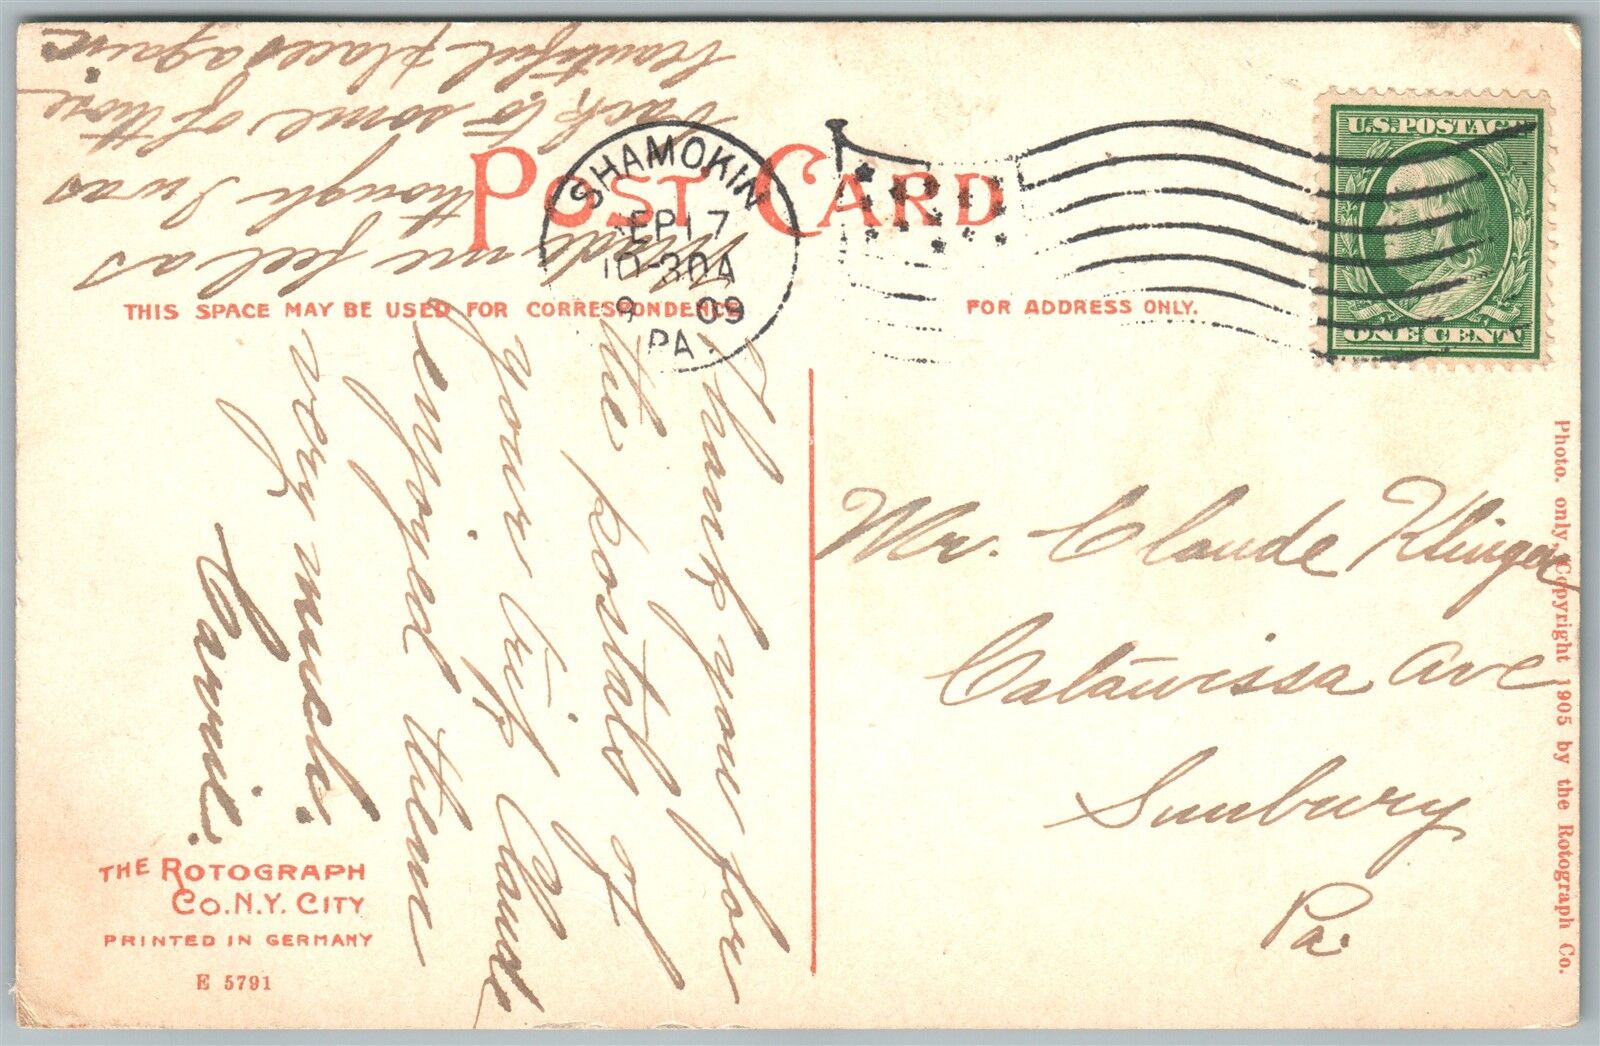 POST CARD
THIS SPACE MAY BE USED FOR CORRESPONDENCE
FOR ADDRESS ONLY.
SHAMOKIN
SEP 17
10-30A
09
PA.
U.S. POSTAGE
ONE CENT
Thank you for
the postals of
your trip Claude
enjoyed them
very much.
Carrie.
Made me feel as
though I was
back to some of those
beautiful places again
Mr. Claude Klinger
Catawissa Ave
Sunbury
Pa.
THE ROTOGRAPH
CO. N.Y. CITY
PRINTED IN GERMANY
E 5791
Photo. only Copyright 1905 by the Rotograph Co.